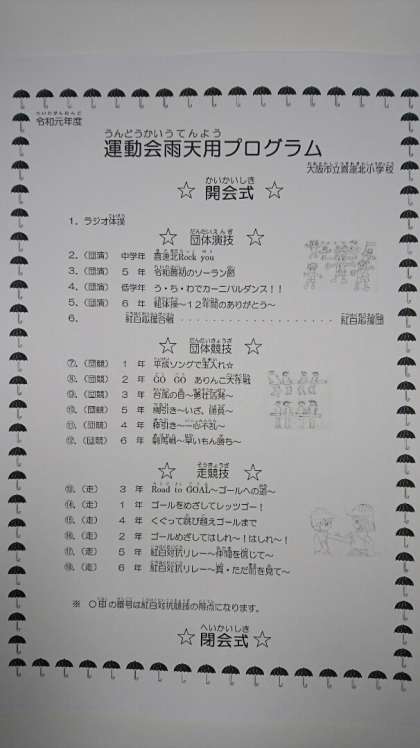 れいわがんねんど
令和元年度
うんどうかいうてんよう
運動会雨天用プログラム
大阪市立喜連北小学校
かいかいしき
☆ 開会式 ☆
1. ラジオ体操
だんたいえんぎ
☆ 団体演技 ☆
2. (団演) 中学年 喜連北Rock you
3. (団演) 5 年 令和最初のソーラン節
4. (団演) 低学年 う・ち・わでカーニバルダンス!!
5. (団演) 6 年 組体操~12年間のありがとう~
6. 紅白応援合戦 紅白応援団
だんたいきょうぎ
☆ 団体競技 ☆
⑦. (団競) 1 年 平成ソングで玉入れ☆
⑧. (団競) 2 年 GO GO ありんこ大作戦
⑨. (団競) 3 年 台風の目~
⑩. (団競) 5 年 綱引き~いざ、
⑪. (団競) 4 年 棒引き~一心不乱~
⑫. (団競) 6 年 騎馬戦~早いもん勝ち~
そうきょうぎ
☆ 走競技 ☆
⑬. (走) 3 年 Road to GOAL~ゴールへの道~
⑭. (走) 1 年 ゴールをめざしてレッツゴー!
⑮. (走) 4 年 くぐって跳び越えゴールまで
⑯. (走) 2 年 ゴールめざしてはしれ~!はしれ~!
⑰. (走) 5 年 紅白対抗リレー~仲間を信じて~
⑱. (走) 6 年 紅白対抗リレー~真・ただ前を見て~
※ ○印の番号は紅白対抗競技の得点になります。
へいかいしき
☆ 閉会式 ☆